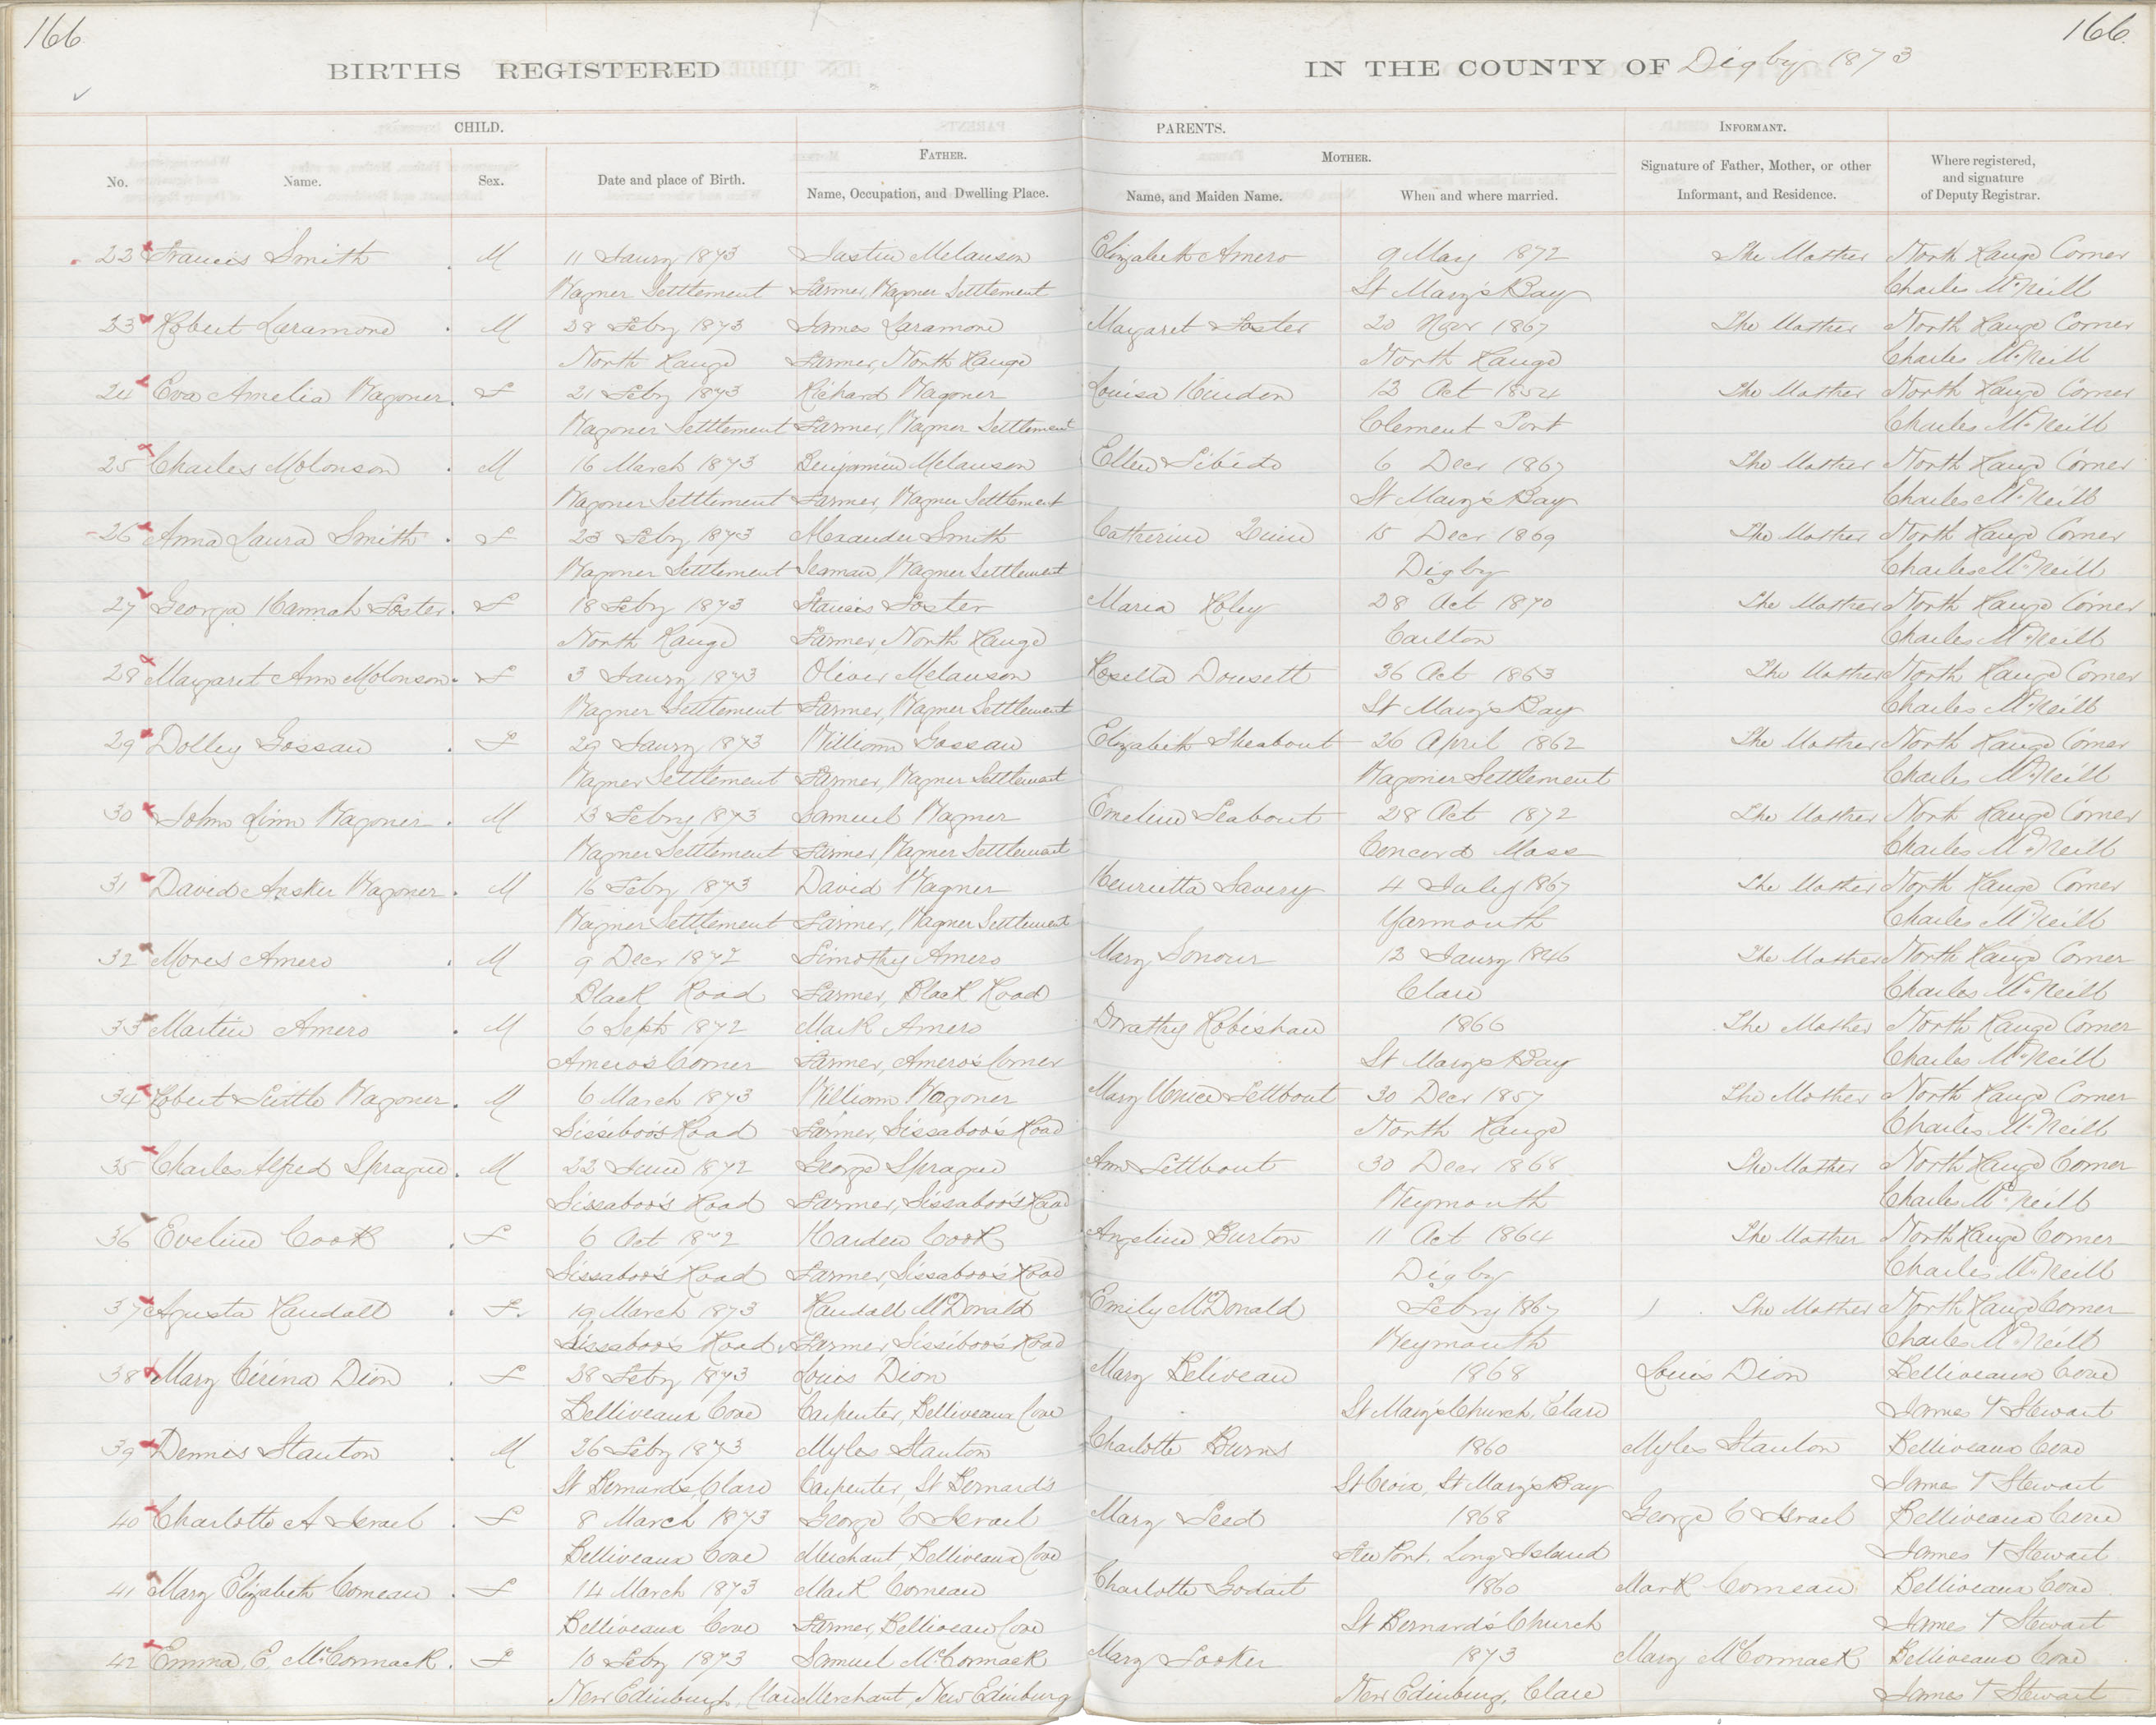 166
166.
BIRTHS REGISTERED IN THE COUNTY OF Digby 1873
CHILD. PARENTS. INFORMANT.
FATHER. MOTHER.
No. Name. Sex. Date and place of Birth. Name, Occupation, and Dwelling Place. Name, and Maiden Name. When and where married. Signature of Father, Mother, or other Informant, and Residence. Where registered, and signature of Deputy Registrar.
22 Francis Smith M 11 Jaury 1873 Justin Melanson Elizabeth Amero 9 May 1872 The Mother North Range Corner
Wagner Settlement Farmer, Wagner Settlement St Mary's Bay Charles McNeill
23 Robert Laramone M 28 Feby 1873 James Laramone Margaret Foster 20 Novr 1867 The Mother North Range Corner
North Range Farmer, North Range North Range Charles McNeill
24 Eva Amelia Wagoner F 21 Feby 1873 Richard Wagoner Louisa Hinden 12 Oct 1854 The Mother North Range Corner
Wagoner Settlement Farmer, Wagner Settlement Clement Port Charles McNeill
25 Charles Molonson M 16 March 1873 Benjamin Melanson Ellen Libedo 6 Decr 1867 The Mother North Range Corner
Wagoner Settlement Farmer, Wagner Settlement St Mary's Bay Charles McNeill
26 Anna Laura Smith F 23 Feby 1873 Alexander Smith Catherine 15 Decr 1869 The Mother North Range Corner
Wagoner Settlement Seaman, Wagner Settlement Digby Charles McNeill
27 Georga Hannah Foster F 18 Feby 1873 Francis Foster Maria Roley 28 Oct 1870 The Mother North Range Corner
North Range Farmer, North Range Carlton Charles McNeill
28 Margaret Ann Molonson F 3 Jaury 1873 Oliver Melanson Rosella Dousett 26 Oct 1863 The Mother North Range Corner
Wagner Settlement Farmer, Wagner Settlement St Mary's Bay Charles McNeill
29 Dolley Gossau F 29 Jaury 1873 William Gossau Elizabeth Sheabout 26 April 1862 The Mother North Range Corner
Wagner Settlement Farmer, Wagner Settlement Wagoner Settlement Charles McNeill
30 John Linn Wagoner M 13 Febry 1873 Samuel Wagner Emeline Seabout 28 Oct 1872 The Mother North Range Corner
Wagner Settlement Farmer, Wagner Settlement Concord Mass Charles McNeill
31 David Ansker Wagoner M 16 Feby 1873 David Wagner Henrietta Savery 4 July 1867 The Mother North Range Corner
Wagner Settlement Farmer, Wagner Settlement Yarmouth Charles McNeill
32 Mores Amero M 9 Decr 1872 Timothy Amero Mary Sonour 12 Jaury 1846 The Mother North Range Corner
Black Road Farmer, Black Road Clare Charles McNeill
33 Martin Amero M 6 Sept 1872 Mark Amero Dorathy Robishau 1866 The Mother North Range Corner
Amero's Corner Farmer, Amero's Corner St Mary's Bay Charles McNeill
34 Robert Little Wagoner M 6 March 1873 William Wagoner Mary Settbout 30 Decr 1857 The Mother North Range Corner
Sissiboo's Road Farmer, Sissaboo's Road North Range Charles McNeill
35 Charles Alfred Sprague M 22 June 1872 George Sprague Ann Settbout 30 Decr 1868 The Mother North Range Corner
Sissaboo's Road Farmer, Sissaboo's Road Weymouth Charles McNeill
36 Eveline Cook F 6 Oct 1872 Harden Cook Angeline Burton 11 Oct 1864 The Mother North Range Corner
Sissaboo's Road Farmer, Sissaboo's Road Digby Charles McNeill
37 Agusta Randall F. 19 March 1873 Randall McDonald Emily McDonald Febry 1867 The Mother North Range Corner
Sissaboo's Road Farmer, Sissiboo's Road Weymouth Charles McNeill
38 Mary Cirina Dion F 28 Feby 1873 Louis Dion Mary Beliveau 1868 Louis Dion Belliveaux Cove
Belliveaux Cove Carpenter, Belliveaux Cove St Mary's Church, Clare James T Stewart
39 Dennis Stanton M 26 Feby 1873 Myles Stanton Charlotte Burns 1860 Myles Stanton Belliveaux Cove
St Bernards, Clare Carpenter, St Bernard's St Croix, St Mary's Bay James T Stewart
40 Charlotte A Israel F 8 March 1873 George C Israel Mary Seed 1868 George C Israel Belliveaux Cove
Belliveaux Cove Merchant, Belliveaux Cove Free Port, Long Island James T Stewart
41 Mary Elizabeth Comeau F 14 March 1873 Mark Comeau Charlotte Godait 1860 Mark Comeau Belliveaux Cove
Belliveaux Cove Farmer, Belliveau Cove St Bernard's Church James T Stewart
42 Emma E. McCormack F 10 Feby 1873 Samuel McCormack Mary Looker 1873 Mary McCormack Belliveaux Cove
New Edinburgh, Clare Merchant, New Edinburg New Edinburg, Clare James T Stewart